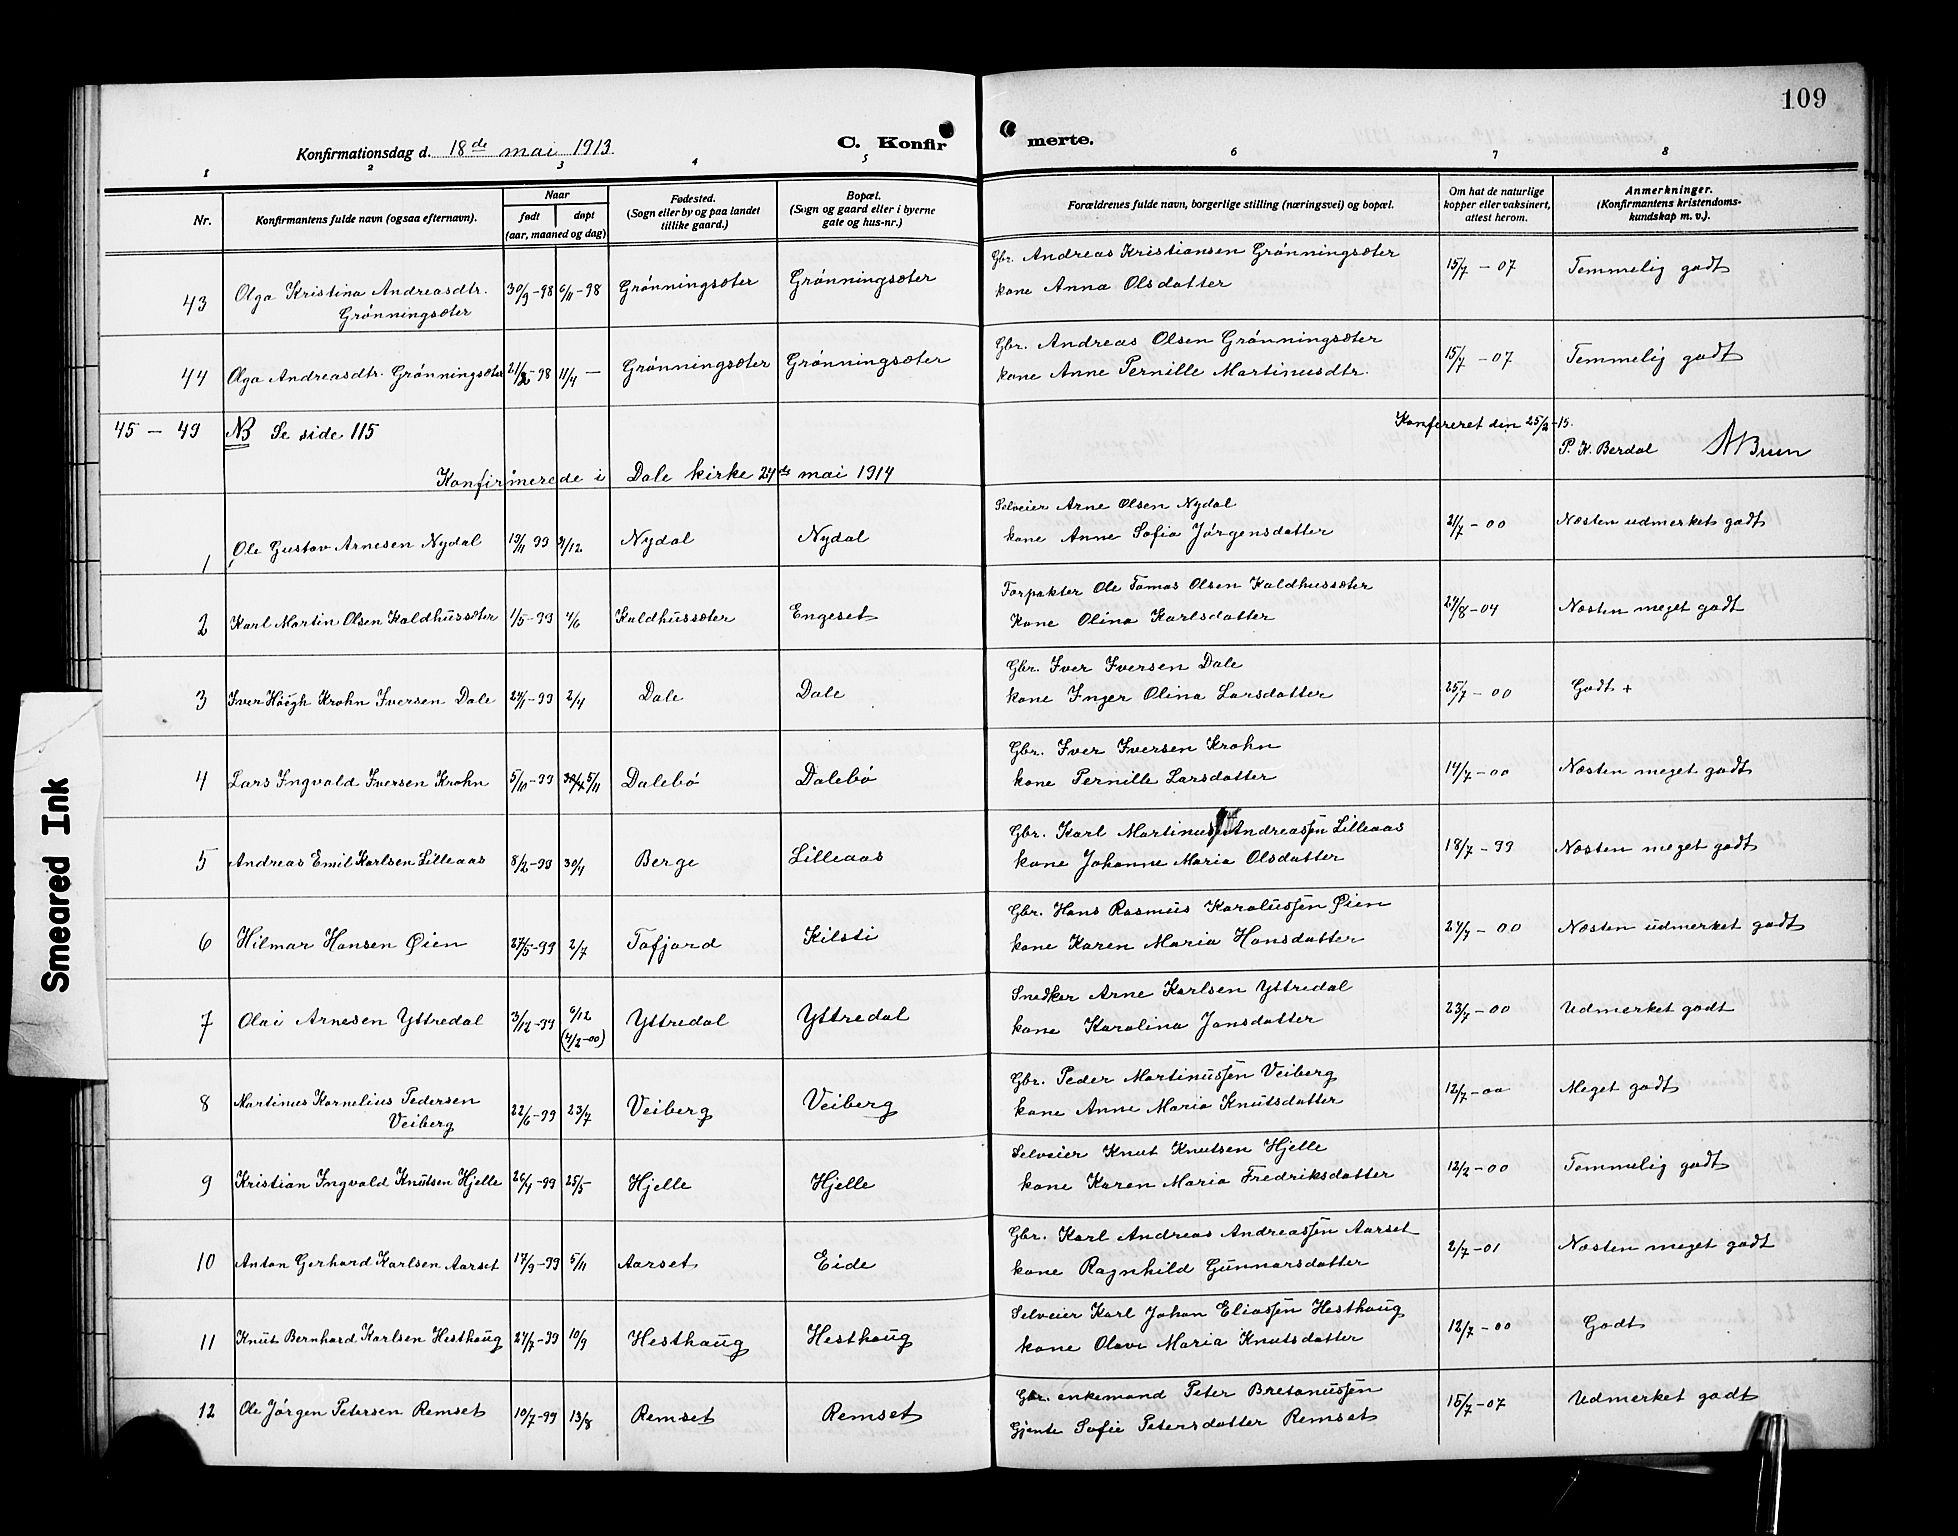 109
Konfirmationsdag d. 18de mai 1913. C. Konfirmerte.
1 2 3 4 5 6 7 8
Nr. Konfirmantens fulde navn (ogsaa efternavn). Naar født døpt (aar, maaned og dag) Fødested. (Sogn eller by og paa landet tillike gaard.) Bopæl. (Sogn og gaard eller i byerne gate og hus-nr.) Forældrenes fulde navn, borgerlige stilling (næringsvei) og bopæl. Om hat de naturlige kopper eller vaksinert, attest herom. Anmerkninger. (Konfirmantens kristendomskundskap m. v.).
43 Olga Kristina Andreasdtr. Grønningsæter 30/9-98 6/11-98 Grønningsæter Grønningsæter Gbr. Andreas Kristiansen Grønningsæter
kone Anna Olsdatter 15/7-07 Temmelig godt
44 Olga Andreasdtr. Grønningsæter 21/2-98 11/4 — Grønningsæter Grønningsæter Gbr. Andreas Olsen Grønningsæter
kone Anne Pernille Martinusdtr. 15/7-07 Temmelig godt
45 - 49 NB Se side 115 Konfereret den 25/2-15.
P. K. Berdal ABruun
Konfirmerede i Dale kirke 24de mai 1914
1 Ole Gustav Arnesen Nydal 19/11 99 31/12 Nydal Nydal Selveier Arne Olsen Nydal
kone Anne Sofia Jørgensdatter 21/7-00 Næsten udmerket godt
2 Karl Martin Olsen Kaldhussæter 1/5-99 4/6 Kaldhussæter Engeset Forpakter Ole Tomas Olsen Kaldhussæter
kone Olina Karlsdatter 24/8-04 Næsten meget godt
3 Iver Høegh Krohn Iversen Dale 24/1-99 2/4 Dale Dale Gbr. Iver Iversen Dale
kone Inger Olina Larsdatter 25/7-00 Godt +
4 Lars Ingvald Iversen Krohn 5/10-99 5/11 Dalebø Dalebø Gbr. Iver Iversen Krohn
kone Pernille Larsdatter 14/7-00 Næsten meget godt
5 Andreas Emil Karlsen Lilleaas 8/2-99 30/4 Berge Lilleaas Gbr. Karl Martinus Andreassen Lilleaas
kone Johanne Maria Olsdatter 18/7-99 Næsten meget godt
6 Hilmar Hansen Øien 27/5-99 2/7 Tafjord Kilsti Gbr. Hans Rasmus Karolussen Øien
kone Karen Maria Hansdatter 24/7-00 Næsten udmerket godt
7 Olai Arnesen Yttredal 3/12-99 6/12 (4/2-00) Yttredal Yttredal Snedker Arne Karlsen Yttredal
kone Karolina Jonsdatter 23/7-00 Udmerket godt
8 Martinus Kornelius Pedersen Veiberg 22/6-99 23/7 Veiberg Veiberg Gbr. Peder Martinussen Veiberg
kone Anne Maria Knutsdatter 12/7-00 Meget godt
9 Kristian Ingvald Knutsen Hjelle 26/4-99 25/5 Hjelle Hjelle Selveier Knut Knutsen Hjelle
kone Karen Maria Fredriksdatter 12/2-00 Temmelig godt
10 Anton Gerhard Karlsen Aarset 17/9-99 5/11 Aarset Eide Gbr. Karl Andreas Andreassen Aarset
kone Ragnhild Gunnarsdatter 2/7-01 Næsten meget godt
11 Knut Bernhard Karlsen Hesthaug 27/7-99 10/9 Hesthaug Hesthaug Selveier Karl Johan Eliassen Hesthaug
kone Olave Maria Knutsdatter 12/7-00 Godt
12 Ole Jørgen Petersen Remset 10/7-99 13/8 Remset Remset Gbr. enkemand Peter Bretanussen
Gjente Sofie Petersdatter Remset 15/7-07 Udmerket godt
Smeared Ink